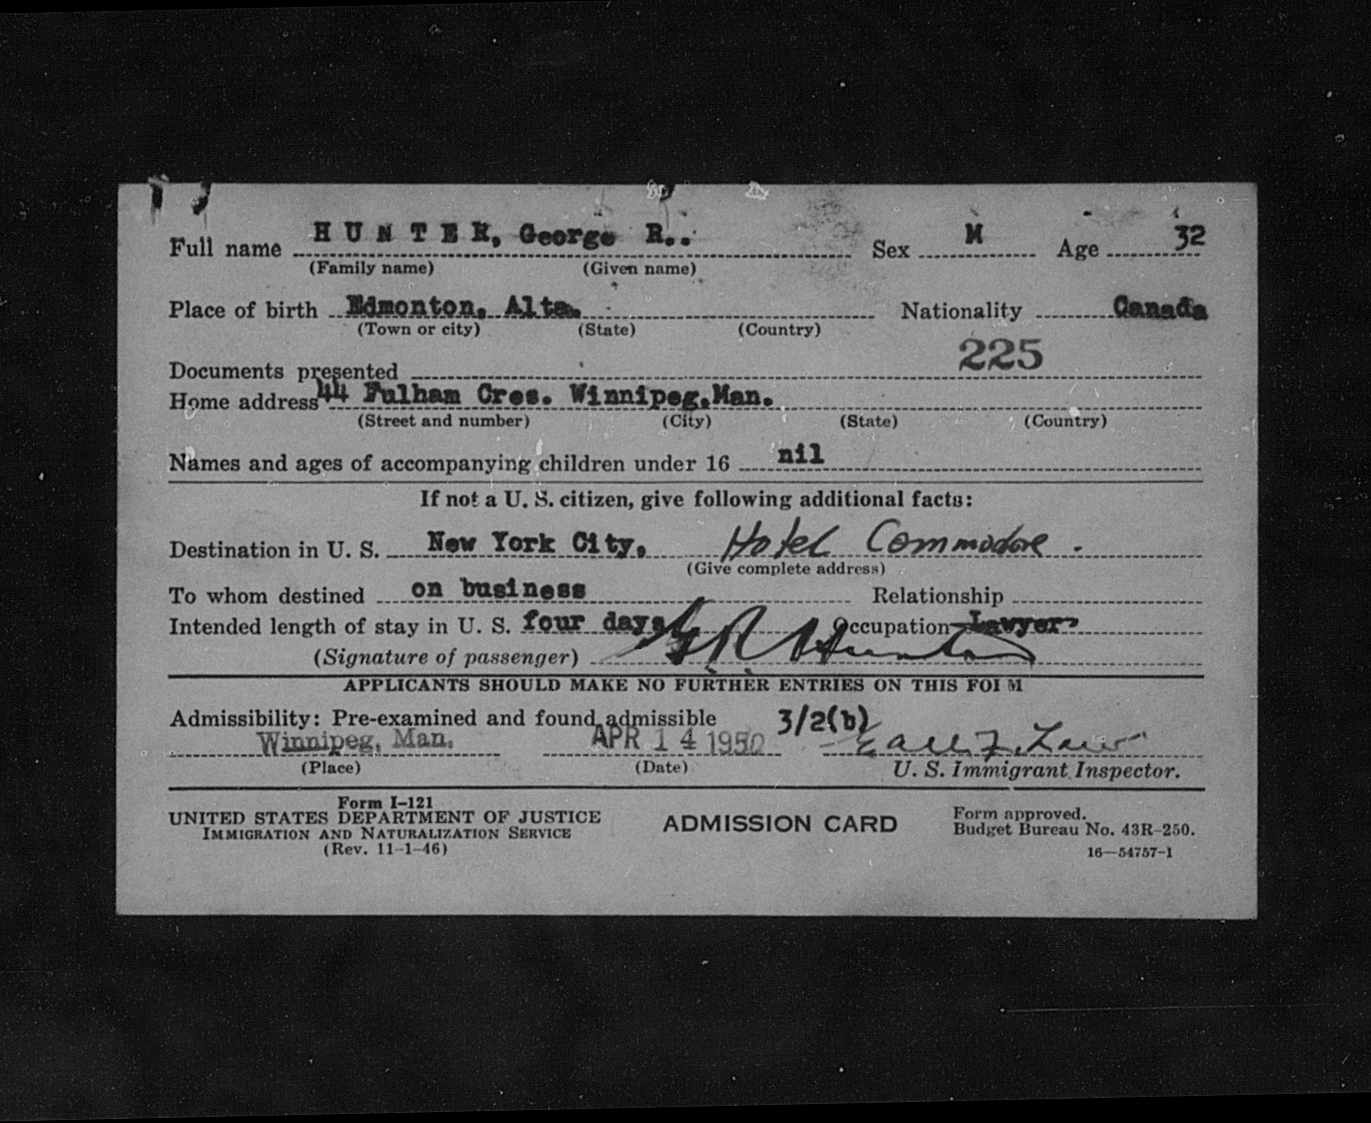 Full name H U N T E R, George R.. Sex M Age 32
(Family name) (Given name)
Place of birth Edmonton, Alta. Nationality Canada
(Town or city) (State) (Country)
225
Documents presented
Home address 44 Fulham Cres. Winnipeg,Man.
(Street and number) (City) (State) (Country)
Names and ages of accompanying children under 16 nil
If not a U. S. citizen, give following additional facts:
Destination in U. S. New York City, Hotel Commodore.
(Give complete address)
To whom destined on business Relationship
Intended length of stay in U. S. four days Occupation Lawyer
(Signature of passenger) G R Hunter
APPLICANTS SHOULD MAKE NO FURTHER ENTRIES ON THIS FORM
Admissibility: Pre-examined and found admissible 3/2(b)
Winnipeg, Man. APR 14 1950 Earl F. Law
(Place) (Date) U. S. Immigrant Inspector.
Form I-121
UNITED STATES DEPARTMENT OF JUSTICE
IMMIGRATION AND NATURALIZATION SERVICE
(Rev. 11-1-46)
ADMISSION CARD
Form approved.
Budget Bureau No. 43R-250.
16—54757-1